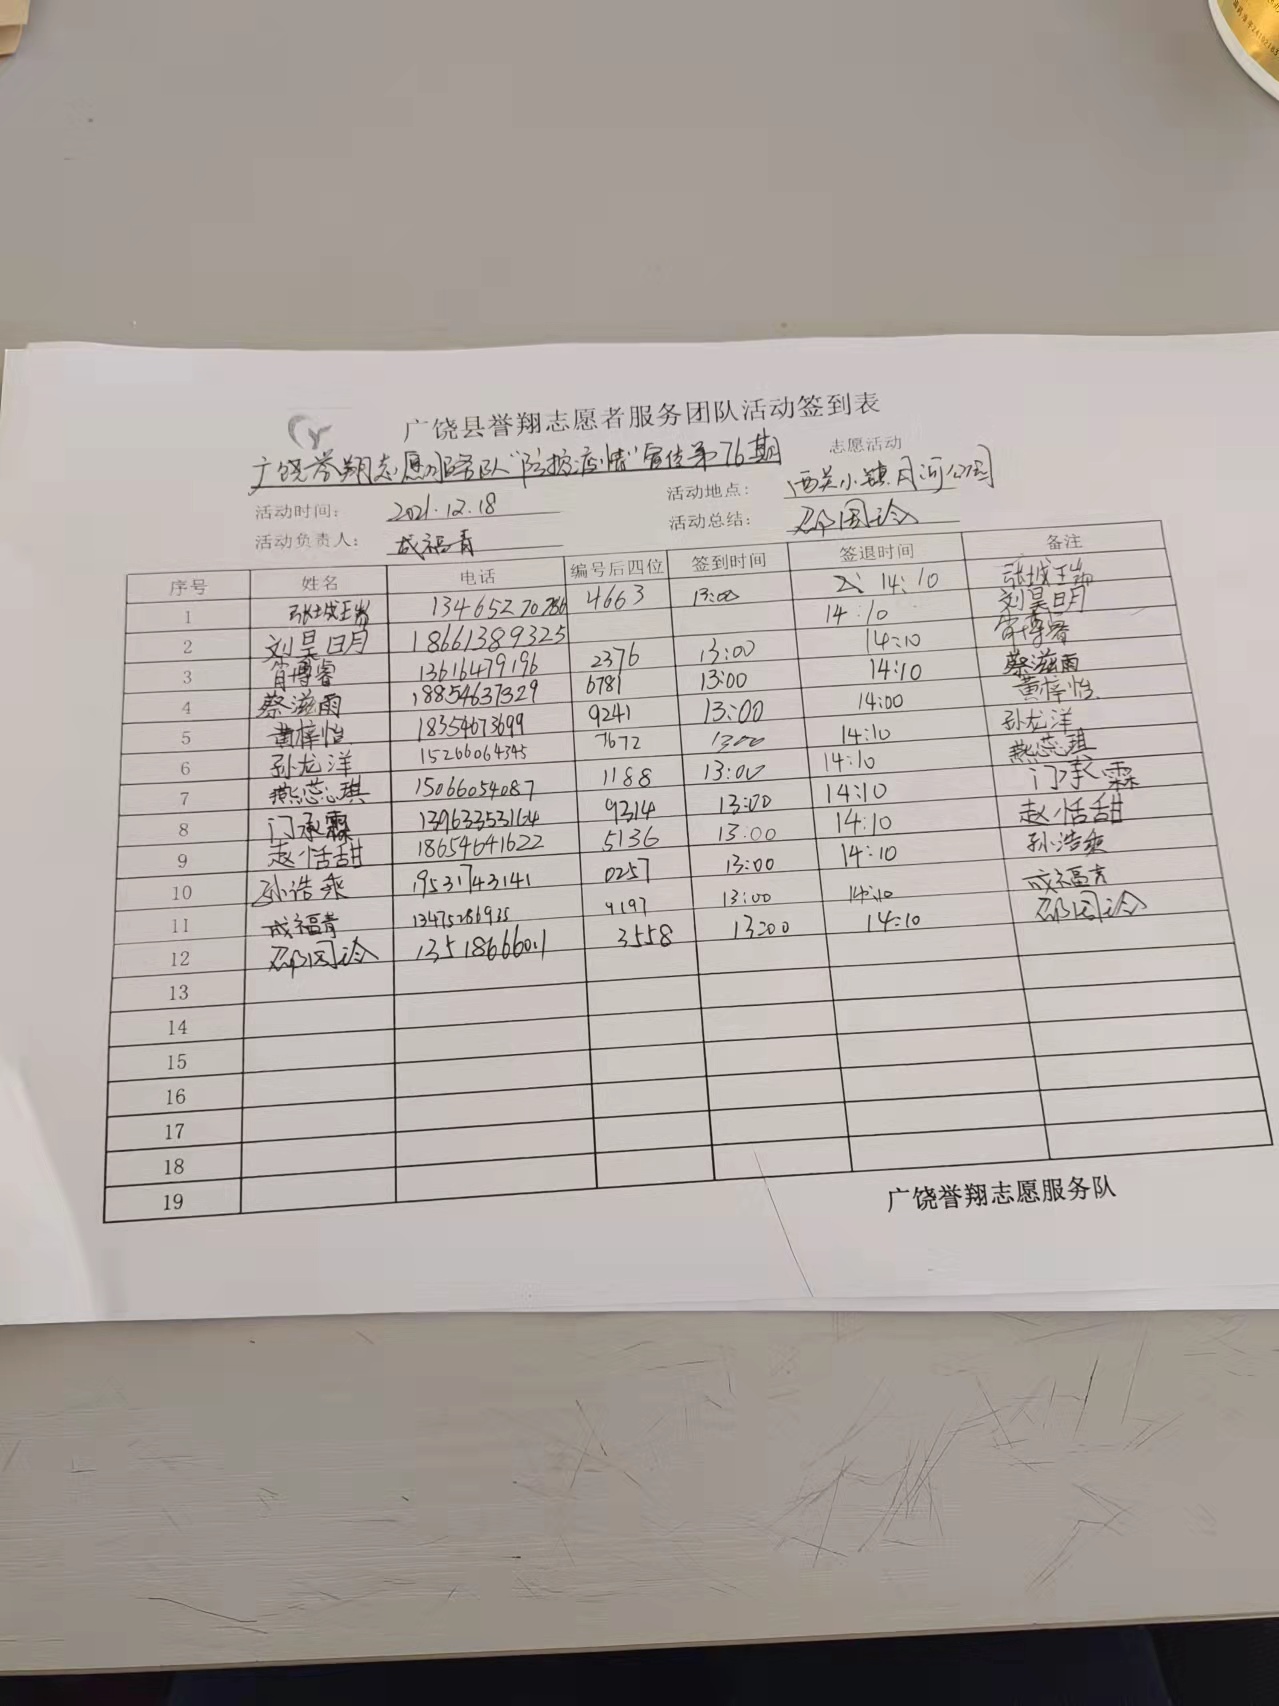 广饶县誉翔志愿者服务团队活动签到表
广饶誉翔志愿服务队"防控疫情"宣传第76期 志愿活动
活动时间: 2021.12.18 活动地点: 西关小镇月河公园
活动负责人: 成福青 活动总结:
序号 姓名 电话 编号后四位 签到时间 签退时间 备注
1 4663 13:00 14:10
2 刘昊明 18661389325 14:10 刘昊明
3 肖博睿 13616479196 2376 13:00 14:10 肖博睿
4 蔡滋雨 18854637329 6781 13:00 14:10 蔡滋雨
5 黄梓怡 18354673699 9241 13:00 14:00 黄梓怡
6 孙龙洋 15266064345 7672 13:00 14:10 孙龙洋
7 燕蕊琪 15066054087 1188 13:00 14:10 燕蕊琪
8 门承霖 9314 13:00 14:10 门承霖
9 赵恬甜 18654641622 5136 13:00 14:10 赵恬甜
10 孙浩乘 19531743141 0257 13:00 14:10 孙浩乘
11 成福青 13475286935 9197 13:00 14:10 成福青
12 3558 13:00 14:10
13
14
15
16
17
18
19
广饶誉翔志愿服务队